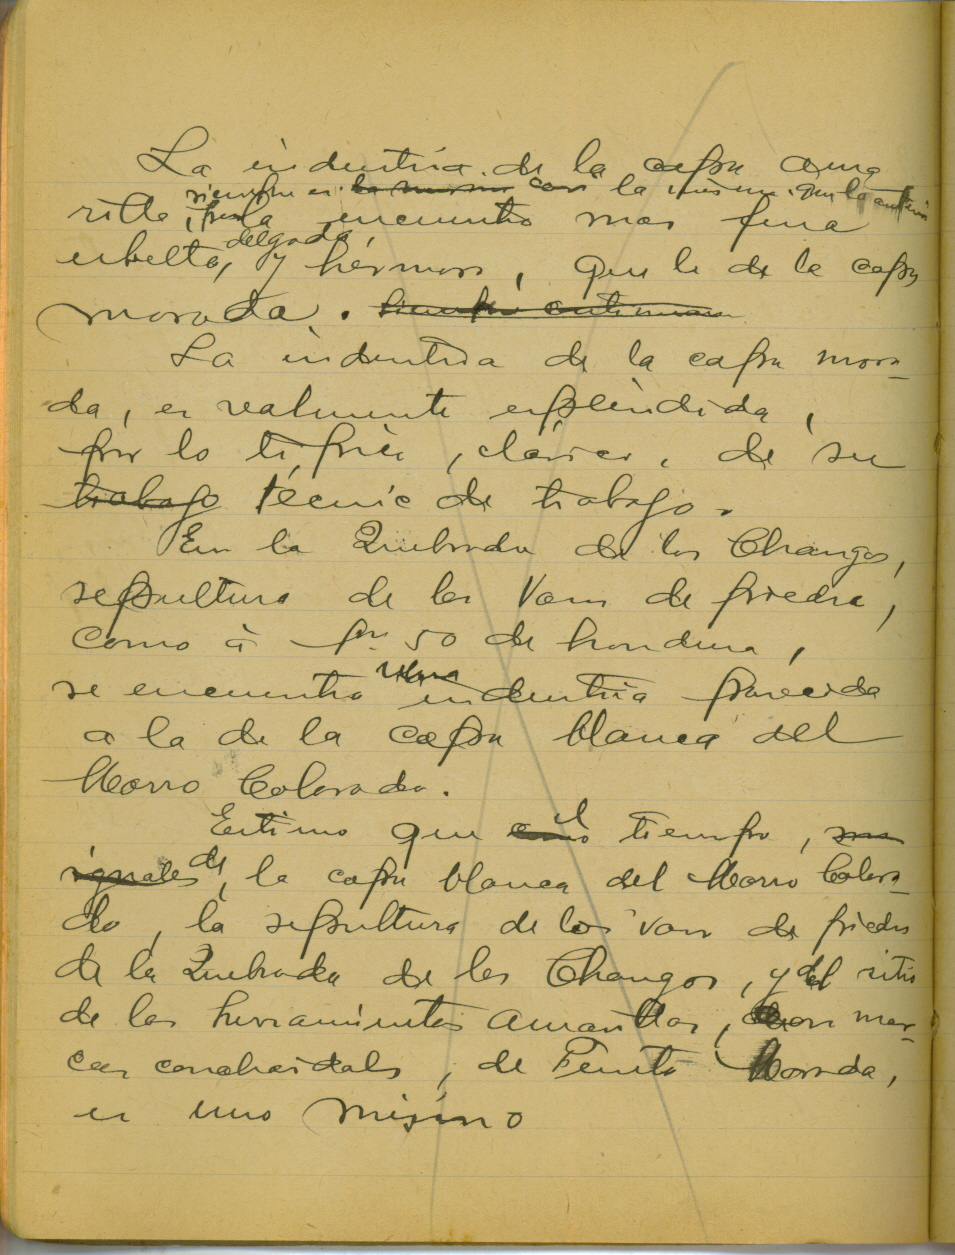 La industria de la capa ama
siempre es la misma con la misma que la anterior
rilla, pero la encuentro mas fina
delgada,
esbelta, y hermosa, que la de la capa
morada.
La industria de la capa mora-
da, es realmente espléndida,
por lo típico, clásico, de su
trabajo técnic de trabajo.
En la Quebrada de los Changos,
sepultura de los Vasos de piedra,
como à 50 de hondura,
se encuentra industria parecida
a la de la capa blanca del
Morro Colorado.
el
Estimo que tiempo, su
de
iguales, la capa blanca del Morro Colora-
do, la sepultura de los vasos de piedra
de la Quebrada de los Changos, y del sitio
de las herramientas amarillas, con mar-
cas concoidales, de Punta Morada,
es uno mismo